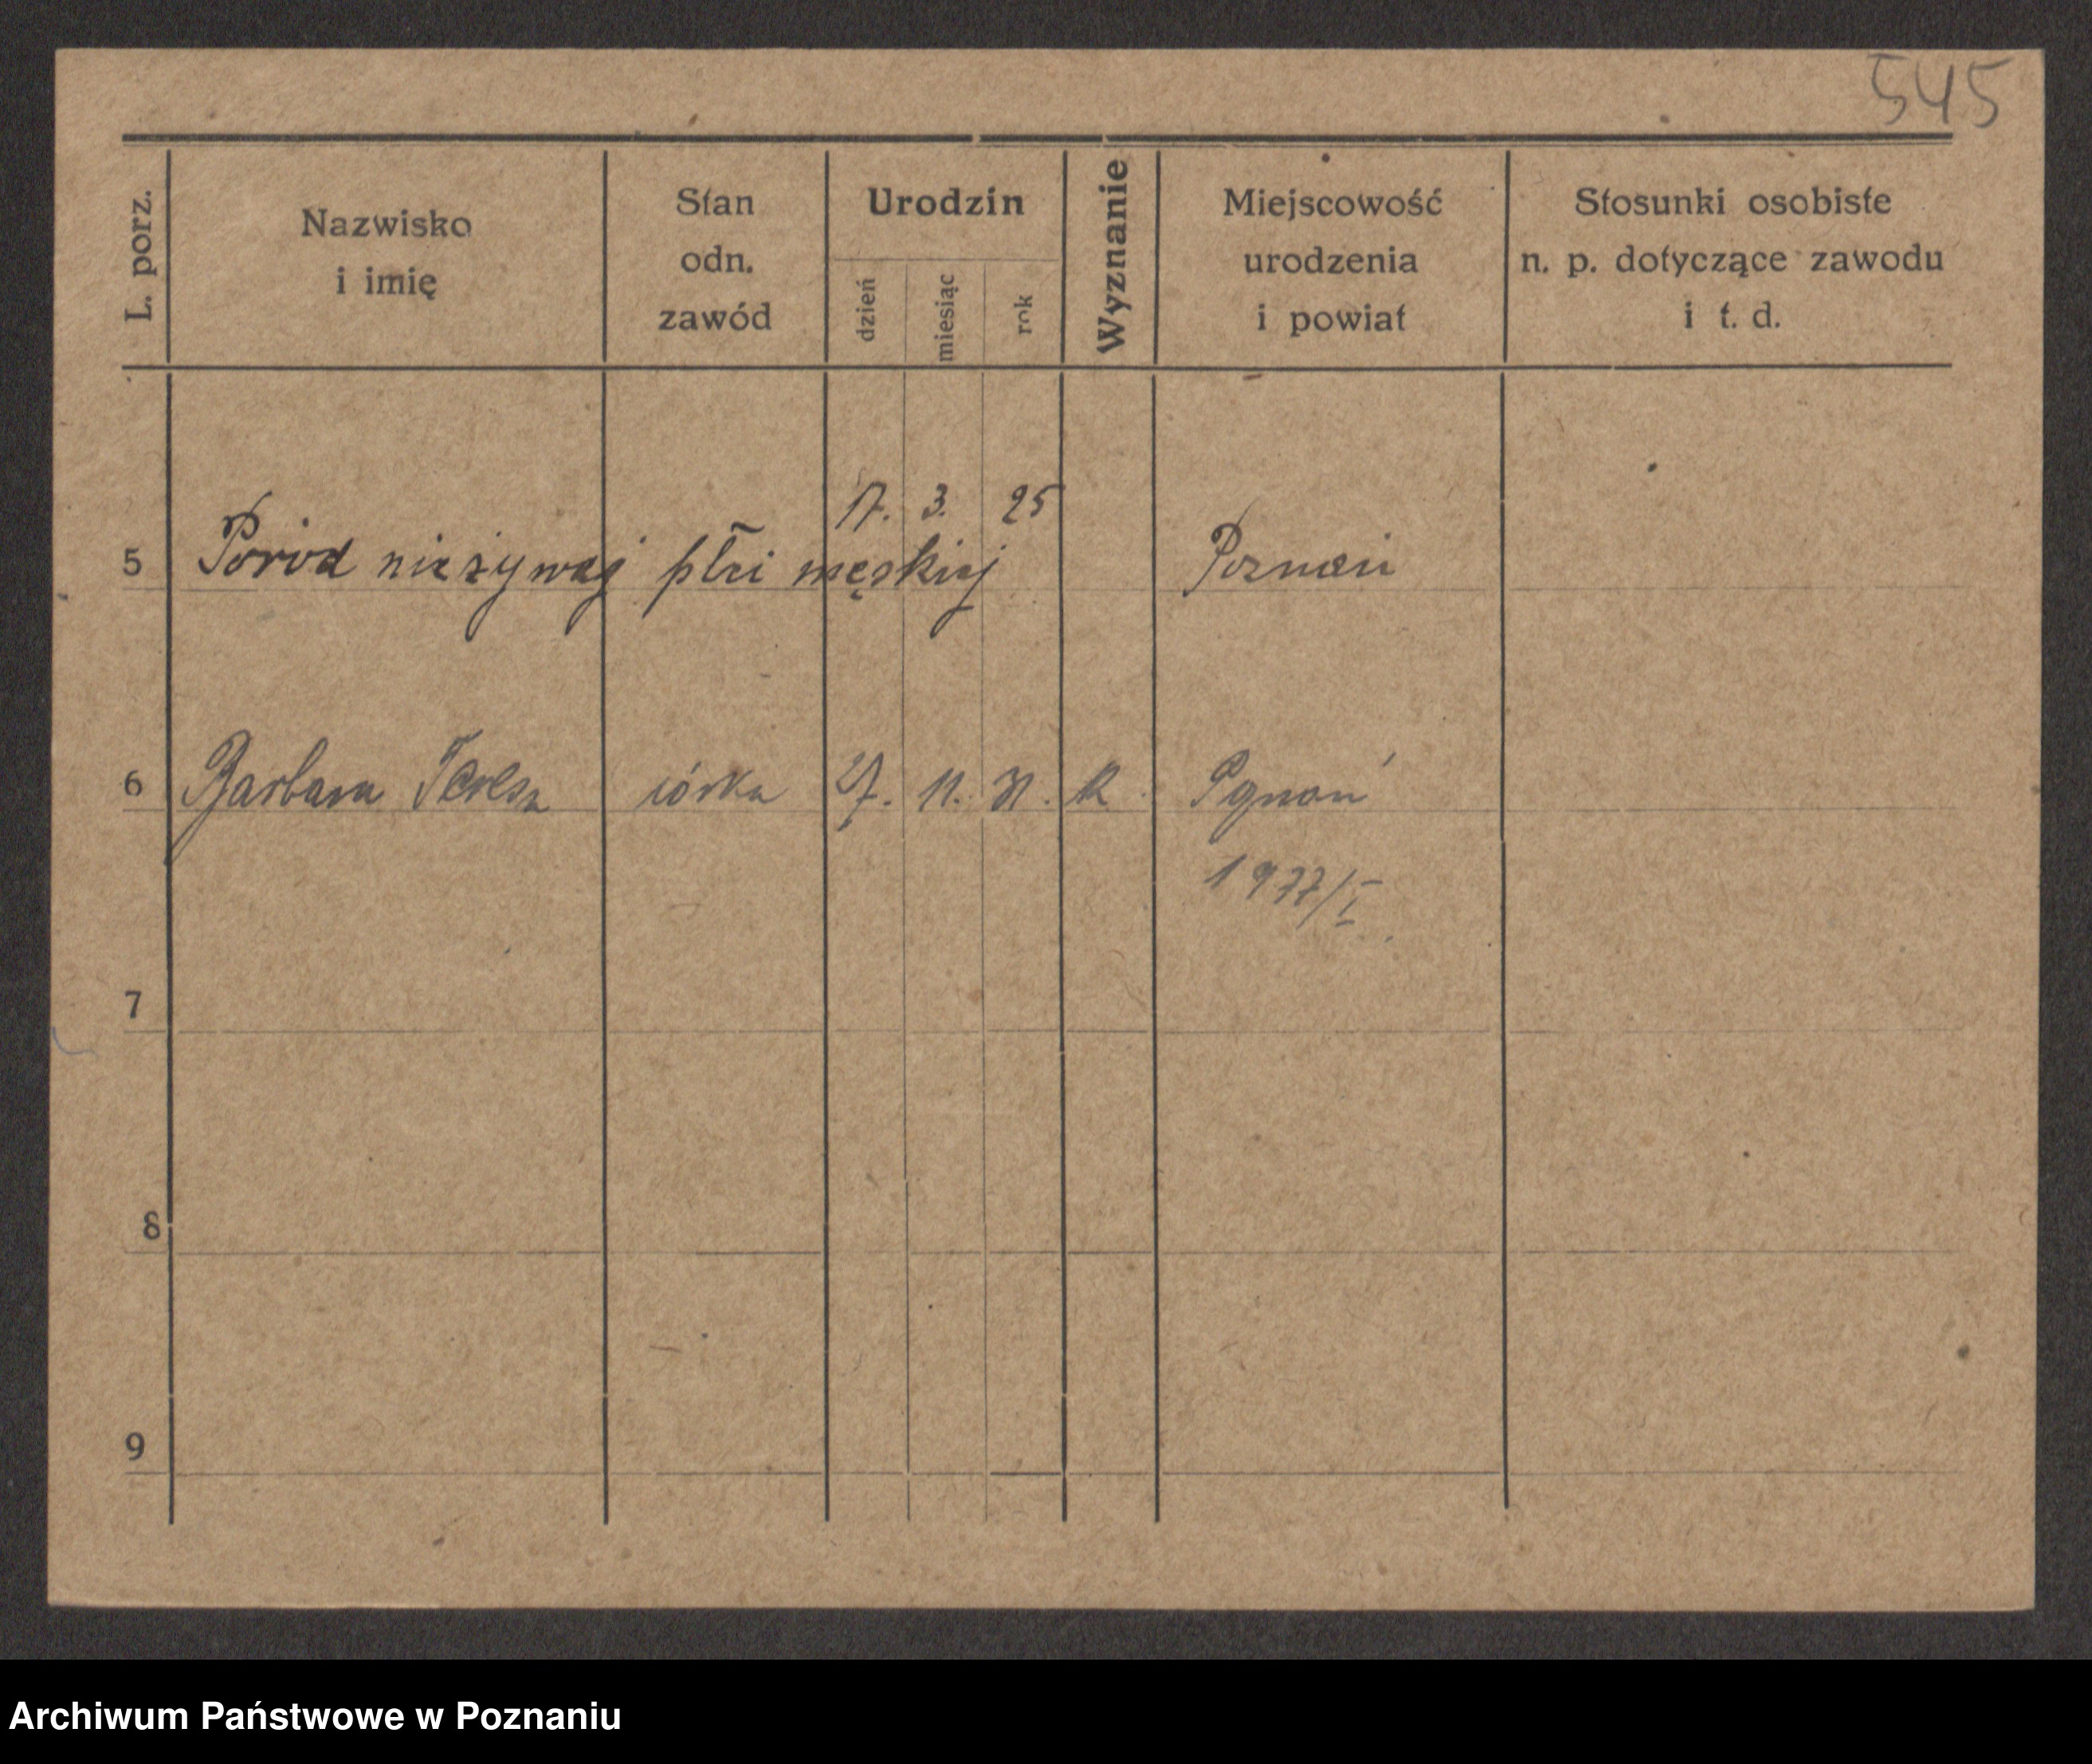 545
L. porz.
Nazwisko
i imię
Stan
odn.
zawód
Urodzin
dzień
miesiąc
rok
Wyznanie
Miejscowość
urodzenia
i powiat
Stosunki osobiste
n. p. dotyczące zawodu
i t. d.
17. 3. 25
5 Poród nieżywej płci męskiej Poznań
6 Barbara Teresa córka 27. 11. 31. R. Poznań
1977/I
7
8
9
Archiwum Państwowe w Poznaniu